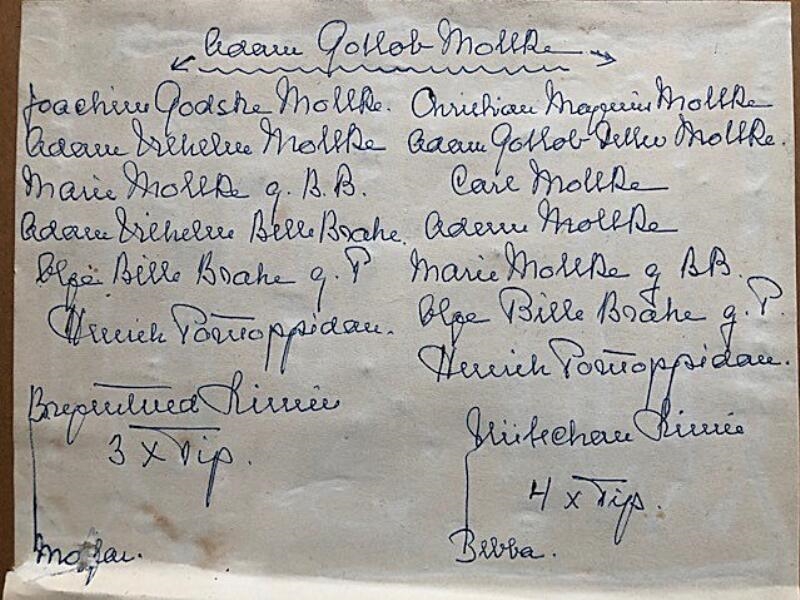 Adam Gottlob Moltke
Joachim Godske Moltke.
Adam Vilhelm Moltke
Marie Moltke g. B.B.
Adam Vilhelm Bille Brahe.
Olga Bille Brahe g. P
Henrich Pontoppidan.
Bregentved Linie
3 x Tip.
Mofar.
Christian Magnus Moltke
Adam Gottlob Detlev Moltke.
Carl Moltke
Adam Moltke
Marie Moltke g BB.
Olga Bille Brahe g. P.
Henrich Pontoppidan.
Nütschau Linie
4 x Tip.
Bebba.